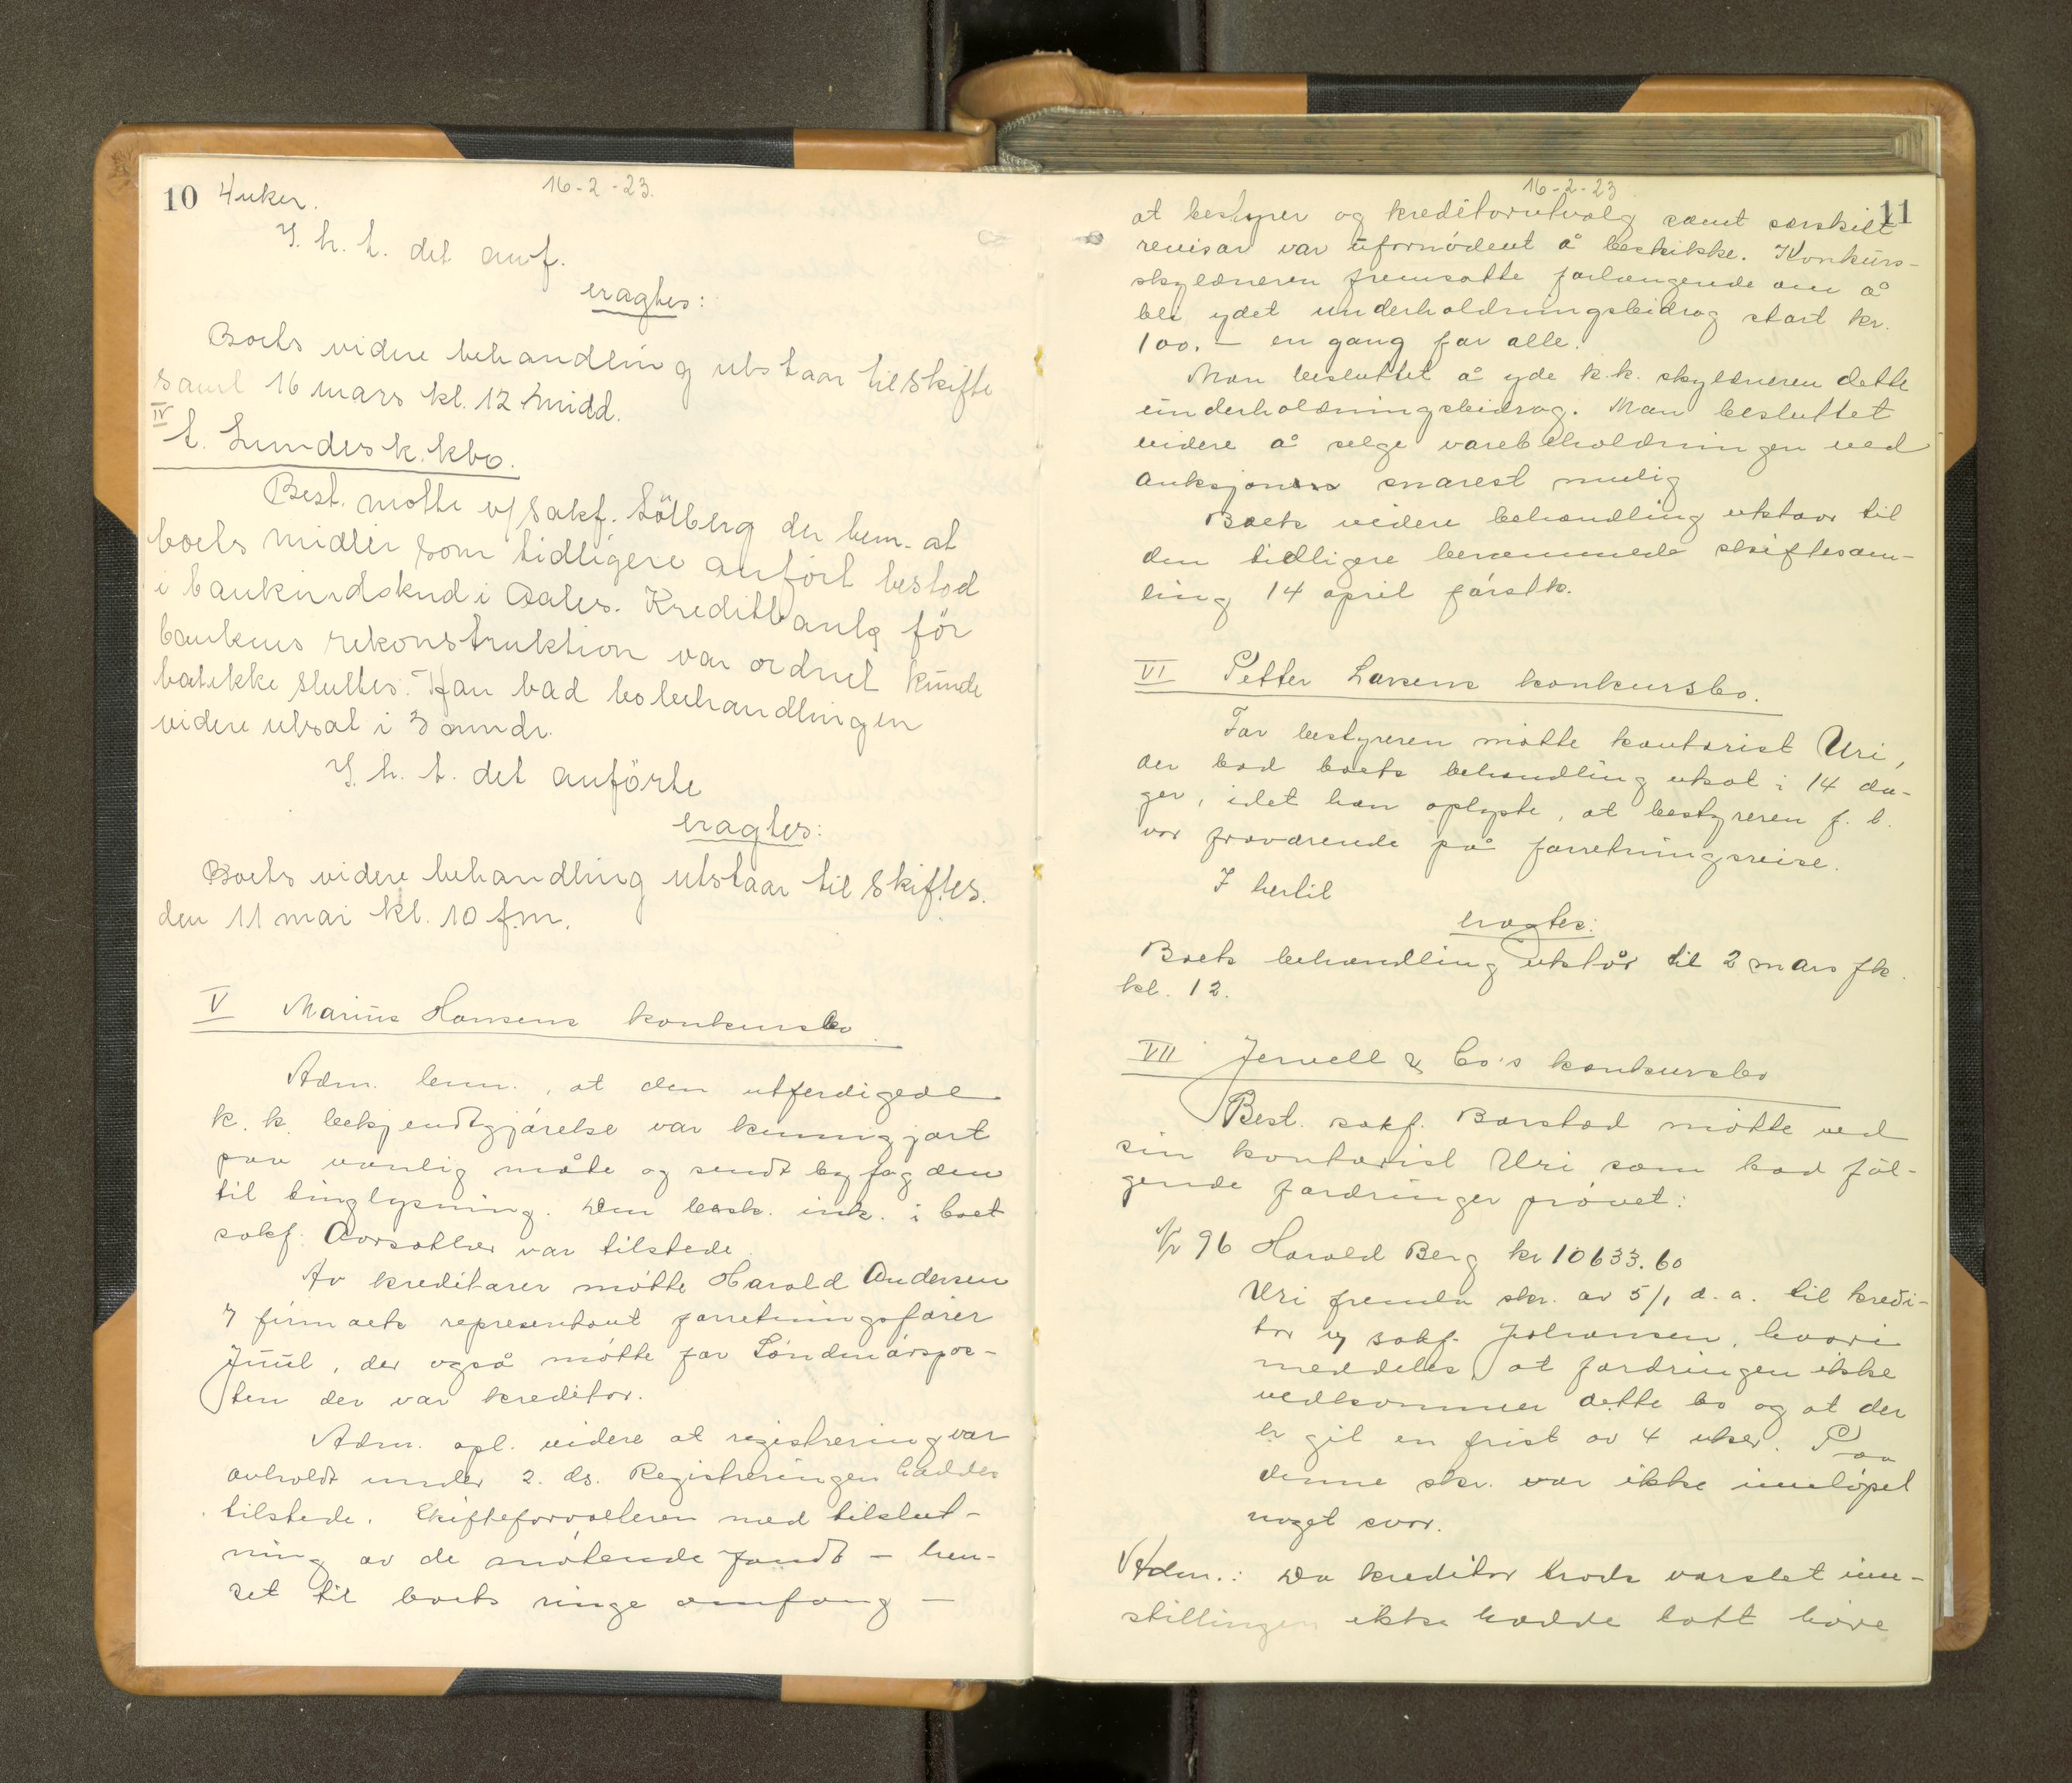 10 4 uker. 16-2-23.
I. h. t. det anf.
eragtes:
Boets videre behandling utstaar til skifte
saml 16 mars kl. 12 midd.
IV
L. Lundes k. kbo.
Best. møtte v/ sakf. Sölberg der bem. at
boets midler som tidligere anfört bestod
i bankindskud i Aales. Kreditbank för
bankens rekonstruktion var ordnet kunde
boet ikke sluttes. Han bad bobehandlingen
videre utsat i 3 mndr.
I. h. t. det anförte
eragtes:
Boets videre behandling utstaar til skiftes.
den 11 mai kl. 10 f.m.
V Marius Hansens konkursbo
Adm. bem., at den utferdigede
k. k. bekjendtgjørelse var kunngjort
paa vanlig måte og sendt byfogden
til tinglysning. Den besk. ink. i boet
sakf. Aarsæther var tilstede.
Av kreditorer møtte Harald Andersen
v/ firmaets representant forretningsfører
Juul, der også møtte for Søndmørspos-
ten der var kreditor.
Adm. opl. videre at registrering var
avholdt under 2. ds. Registreringen haddes
tilstede. Skifteforvalteren med tilslut-
ning av de møtende fandt – hen-
set til boets ringe omfang –
16-2-23 11
at bestyrer og kreditorutvalg samt særskilt
revisor var ufornødent å beskikke. Konkurs-
skyldneren fremsatte forlangende om å
bli ydet underholdningsbidrag stort kr.
100.– en gang for alle.
Man besluttet å yde k.k. skyldneren dette
underholdningsbidrag. Man besluttet
videre å selge varebeholdningen ved
auksjon snarest mulig
Boets videre behandling utstaar til
den tidligere berammede skiftesam-
ling 14 april førstk.
VI Petter Larsens konkursbo.
For bestyreren møtte kontorist Uri,
der bad boets behandling utsat i 14 da-
ger, idet han oplyste, at bestyreren f. t.
var fraværende på forretningsreise.
I hertil
eragtes:
Boets behandling utstår til 2 mars fk.
kl. 12.
VII Jervell & Co's konkursbo
Best. sakf. Barstad møtte ved
sin kontorist Uri som bad føl-
gende fordringer prøvet:
Nr 96 Harald Berg kr 10633.60
Uri fremla skr. av 5/1 d. a. til kredi-
tor v/ sakf. Johansen, hvori
meddeles, at fordringen ikke
vedkommer dette bo og at der
er git en frist av 4 uker. Paa
denne skr. var ikke inneløpet
noget svar.
Adm.: Da kreditor trods varslet inn-
stillingen ikke hadde latt høre